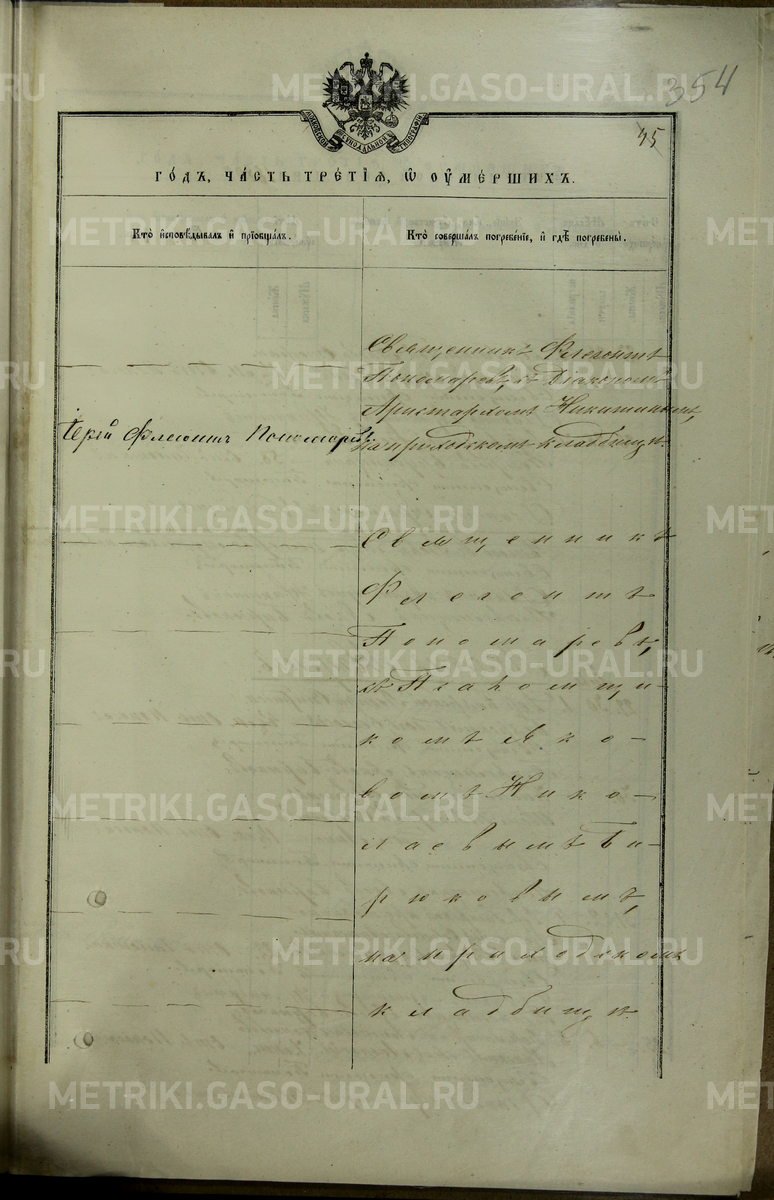 354
45
МОСКОВСКОЙ СѴНОДАЛЬНОЙ ТИПОГРАФІИ
ГО́ДЪ, ЧА́СТЬ ТРЕ́ТІѦ, Ѡ ОУ҆МЕ́РШИХЪ.
Кто̀ и҆сповѣ́дывалъ и҆ прїобща́лъ.
Кто̀ соверша́лъ погребе́нїе, и҆ гдѣ̀ погребены̀.
Священникъ Флегонтъ
Пономаревъ, съ Діакономъ
Аристархомъ Никитинымъ,
на приходскомъ кладбищѣ.
Іерей Флегонтъ Пономаревъ.
Священникъ
Флегонтъ
Пономаревъ,
съ Псаломщи-
комъ Яко-
вомъ Нико-
лаевымъ Би-
рюковымъ,
на приходскомъ
кладбищѣ.
METRIKI.GASO-URAL.RU